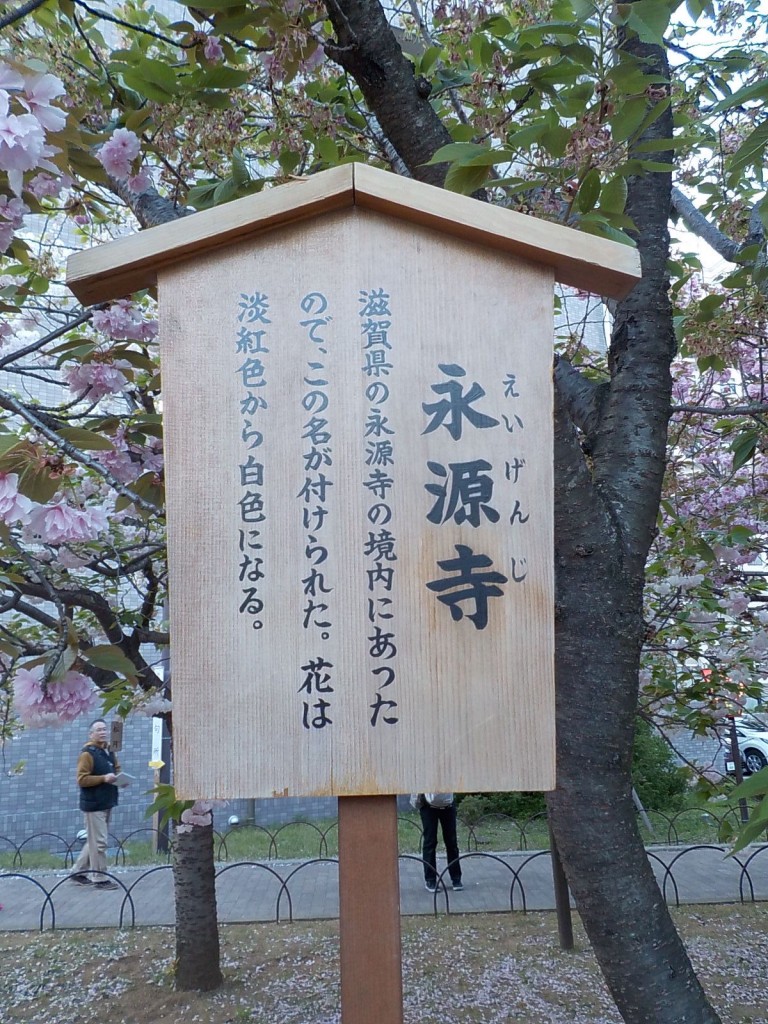 えいげんじ
永源寺
滋賀県の永源寺の境内にあった
ので、この名が付けられた。花は
淡紅色から白色になる。